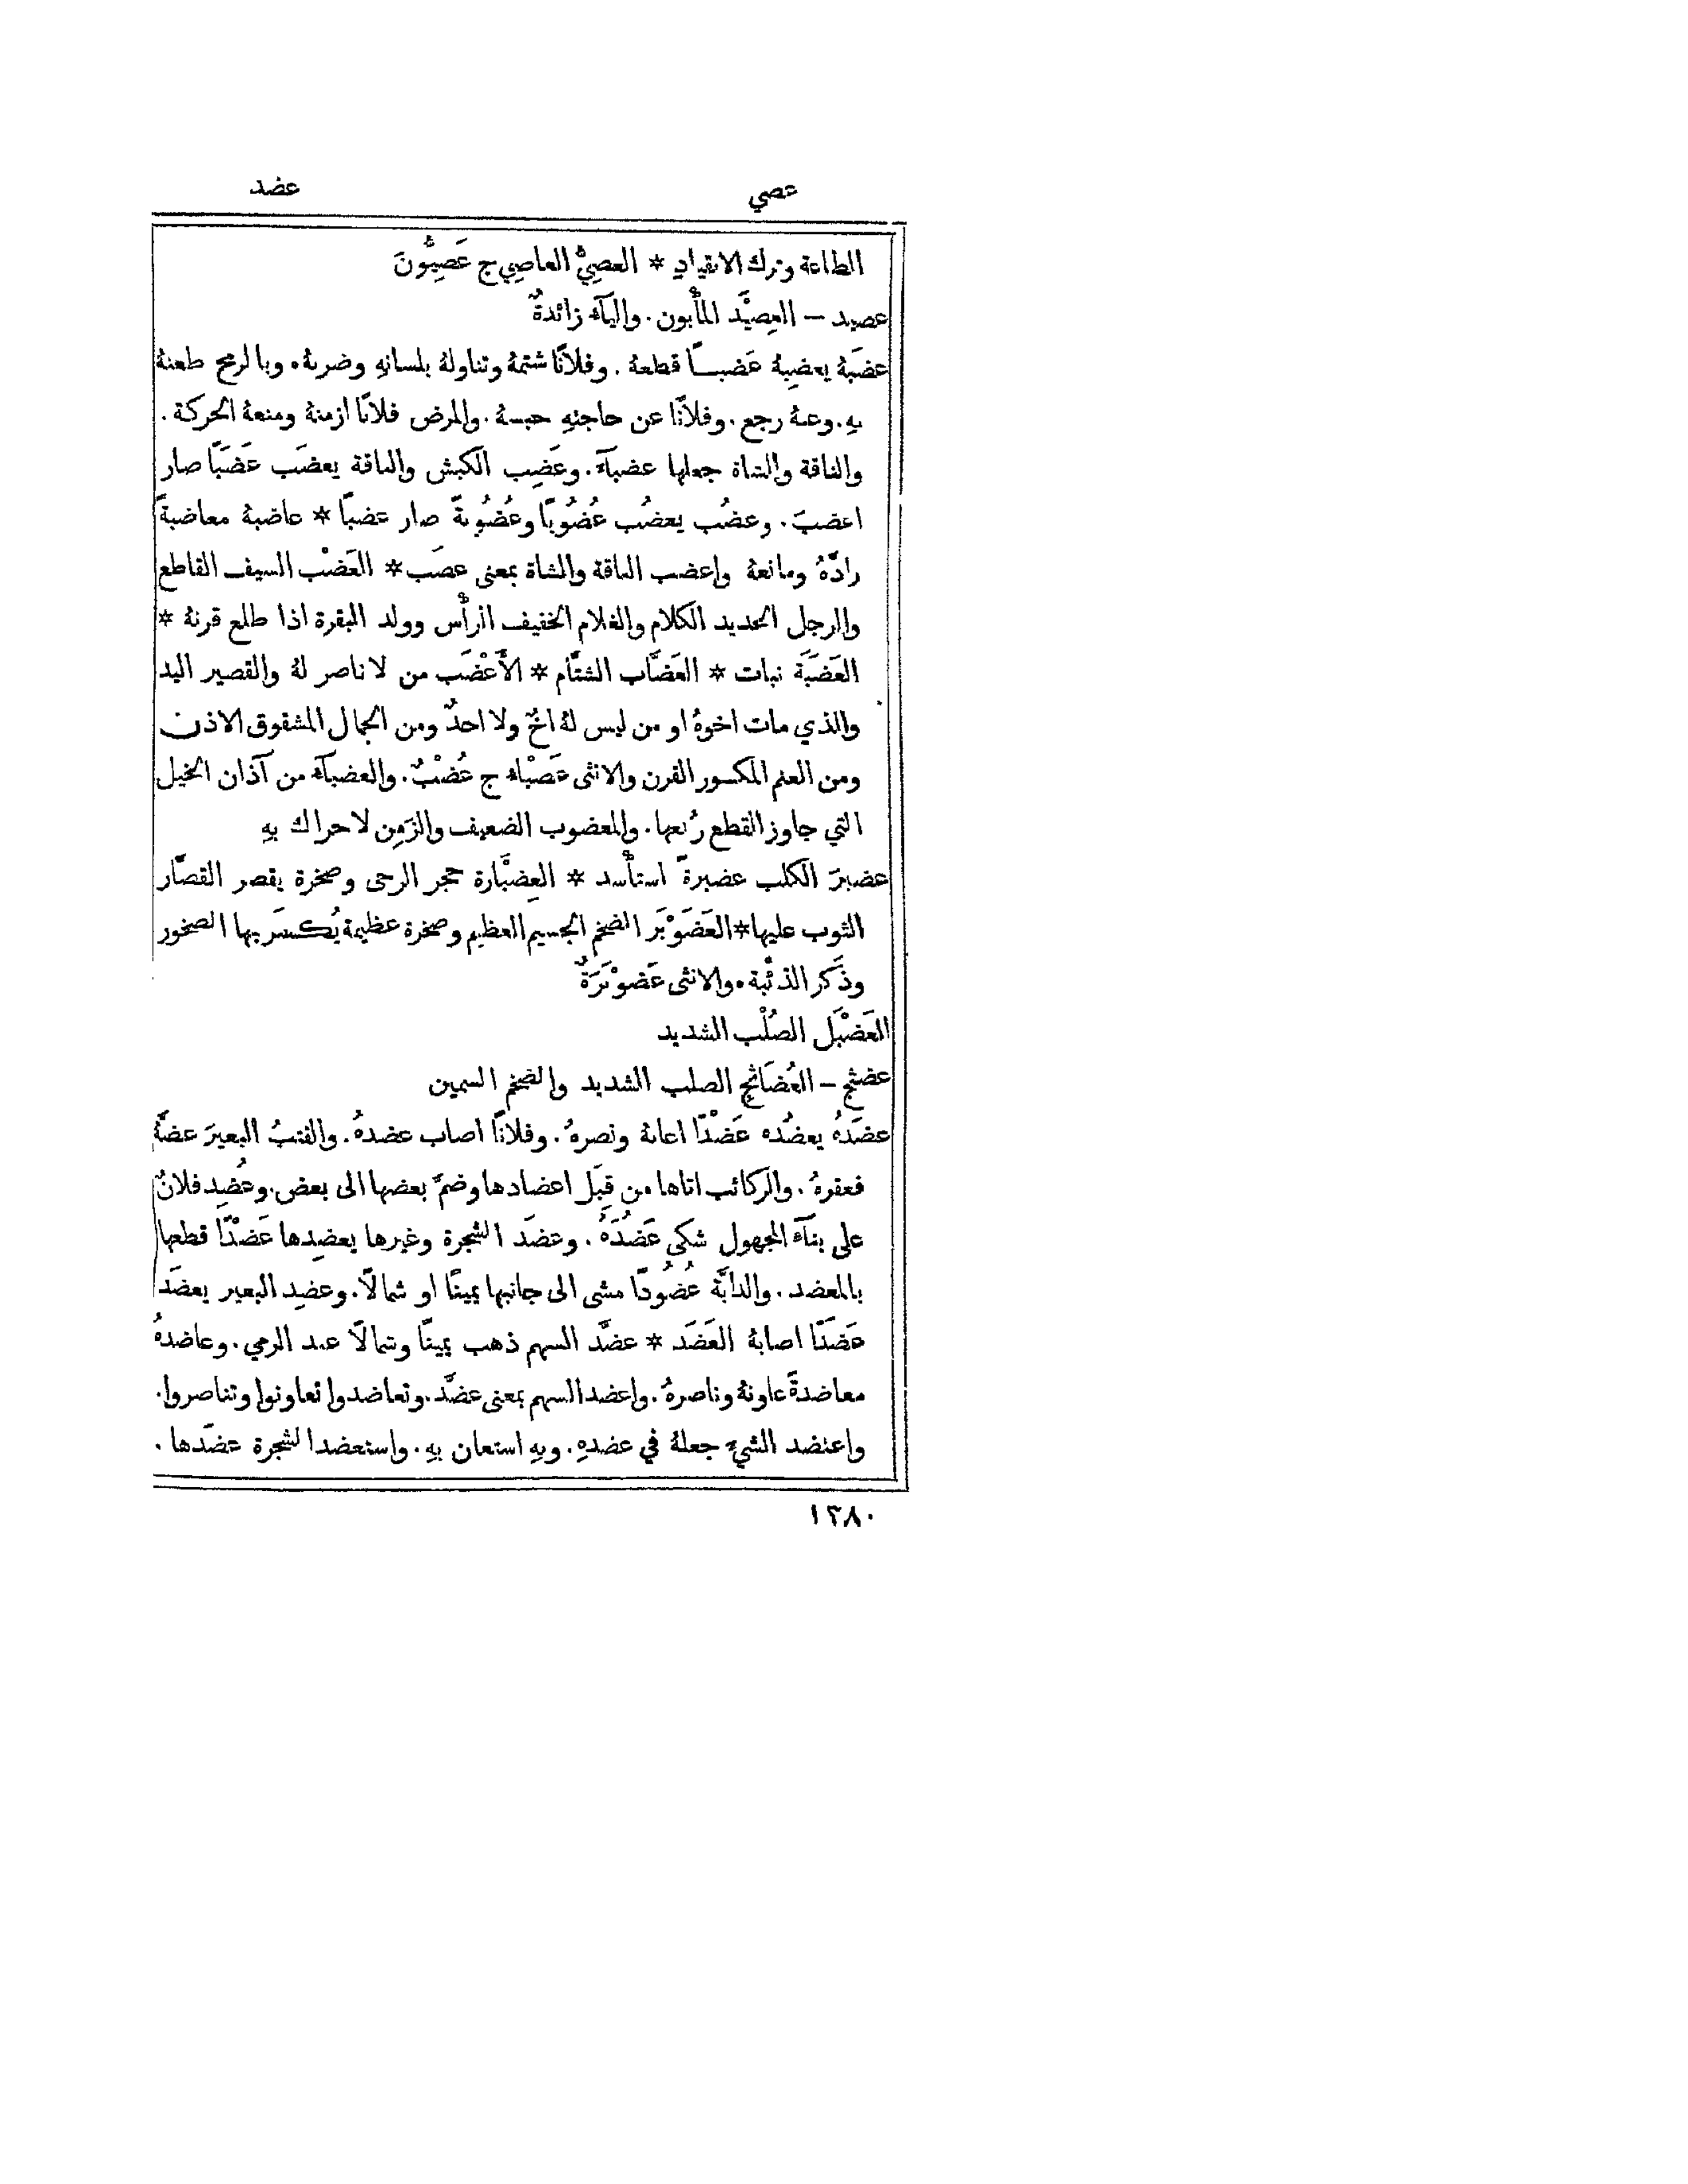 عصي عضد
الطاعة وترك الانقيادِ * العصِيُّ العاصِي ج عَصِيُّونَ
عصيد – العِصْيَد المأْبون. واليآء زائدةٌ
عضَبَهُ يعضِبهُ عَضبًا قطعهُ. وفلانًا شتمهُ وتناولهُ بلسانهِ وضربهُ. وبالرمح طعنهُ
بهِ. وعنهُ رجع. وفلانًا عن حاجتهِ حبسهُ. والمرض فلانًا ازمنهُ ومنعهُ الحركة.
والناقة والشاة جعلها عضبآءَ. وعَضِب الكبش والناقة يعضَب عَضَبًا صار
اعضبَ. وعضُب يعضُب عُضُوبًا وعُضُوبةً صار عضبًا * عاضبهُ معاضبةً
رادَّهُ ومانعهُ واعضب الناقة والشاة بمعنى عضَب * العَضْب السيف القاطع
والرجل الحديد الكلام والغلام الخفيف الرأْس وولد البقرة اذا طلع قرنهُ *
العَضَبَة نبات * العَضَّاب الشتَّام * الأَعْضَب من لا ناصر لهُ والقصير اليد
والذي مات اخوهُ او من ليس لهُ اخٌ ولا احدٌ ومن الجمال المشقوق الاذن
ومن الغنم المكسور القرن والانثى عَضْبَاء ج عُضْبٌ. والعضبآء من آذان الخيل
التي جاوز القطع رُبعها. والمعضوب الضعيف والزَمِن لا حراك بهِ
عضبرَ الكلب عضبرةً استأْسد * العِضْبَارة حجر الرحى وصخرة يقصر القصَّار
الثوب عليها * العَضَوْبَر الضخم الجسيم العظيم وصخرة عظيمة يُكسَر بها الصخور
وذَكر الذئبة. والانثى عَضَوْبَرَةٌ
العَضْبَل الصُلْب الشديد
عضثج – العُضَاثِج الصلب الشديد والضخم السمين
عضَدَهُ يعضُده عَضْدًا اعانهُ ونصرهُ. وفلانًا اصاب عضدهُ. والقتبُ البعيرَ عضَّهُ
فعقرهُ. والركائب اتاها من قِبَل اعضادها وضمَّ بعضها الى بعض. وعُضِد فلانٌ
على بنآء المجهول شكى عَضُدَهُ. وعضَد الشجرة وغيرها يعضِدها عَضْدًا قطعها
بالمعضد. والدابَّة عُضُودًا مشى الى جانبها يمينًا او شمالًا. وعضِد البعير يعضَد
عَضَدًا اصابهُ العَضَد * عضَّد السهم ذهب يمينًا وشمالًا عند الرمي. وعاضدهُ
معاضدةً عاونهُ وناصرهُ. واعضد السهم بمعنى عضَّد. وتعاضدوا تعاونوا وتناصروا.
واعتضد الشيءَ جعلهُ في عضدهِ. وبهِ استعان بهِ. واستعضد الشجرة عضَدها.
١٣٨٠